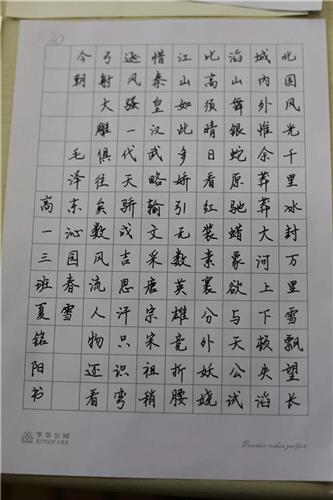 20
北国风光千里冰封万里雪飘望长
城内外惟余莽莽大河上下顿失滔
滔山舞银蛇原驰蜡象欲与天公试
比高须晴日看红装素裹分外妖娆
江山如此多娇引无数英雄竞折腰
惜秦皇汉武略输文采唐宗宋祖稍
逊风骚一代天骄成吉思汗只识弯
弓射大雕俱往矣数风流人物还看
今朝 毛泽东沁园春雪
高一三班夏铭阳书
Practice makes perfect